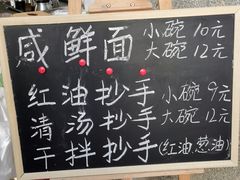 咸鲜面 小碗 10元
大碗 12元
红油抄手 小碗 9元
清汤抄手 大碗 12元
干拌抄手(红油.葱油)